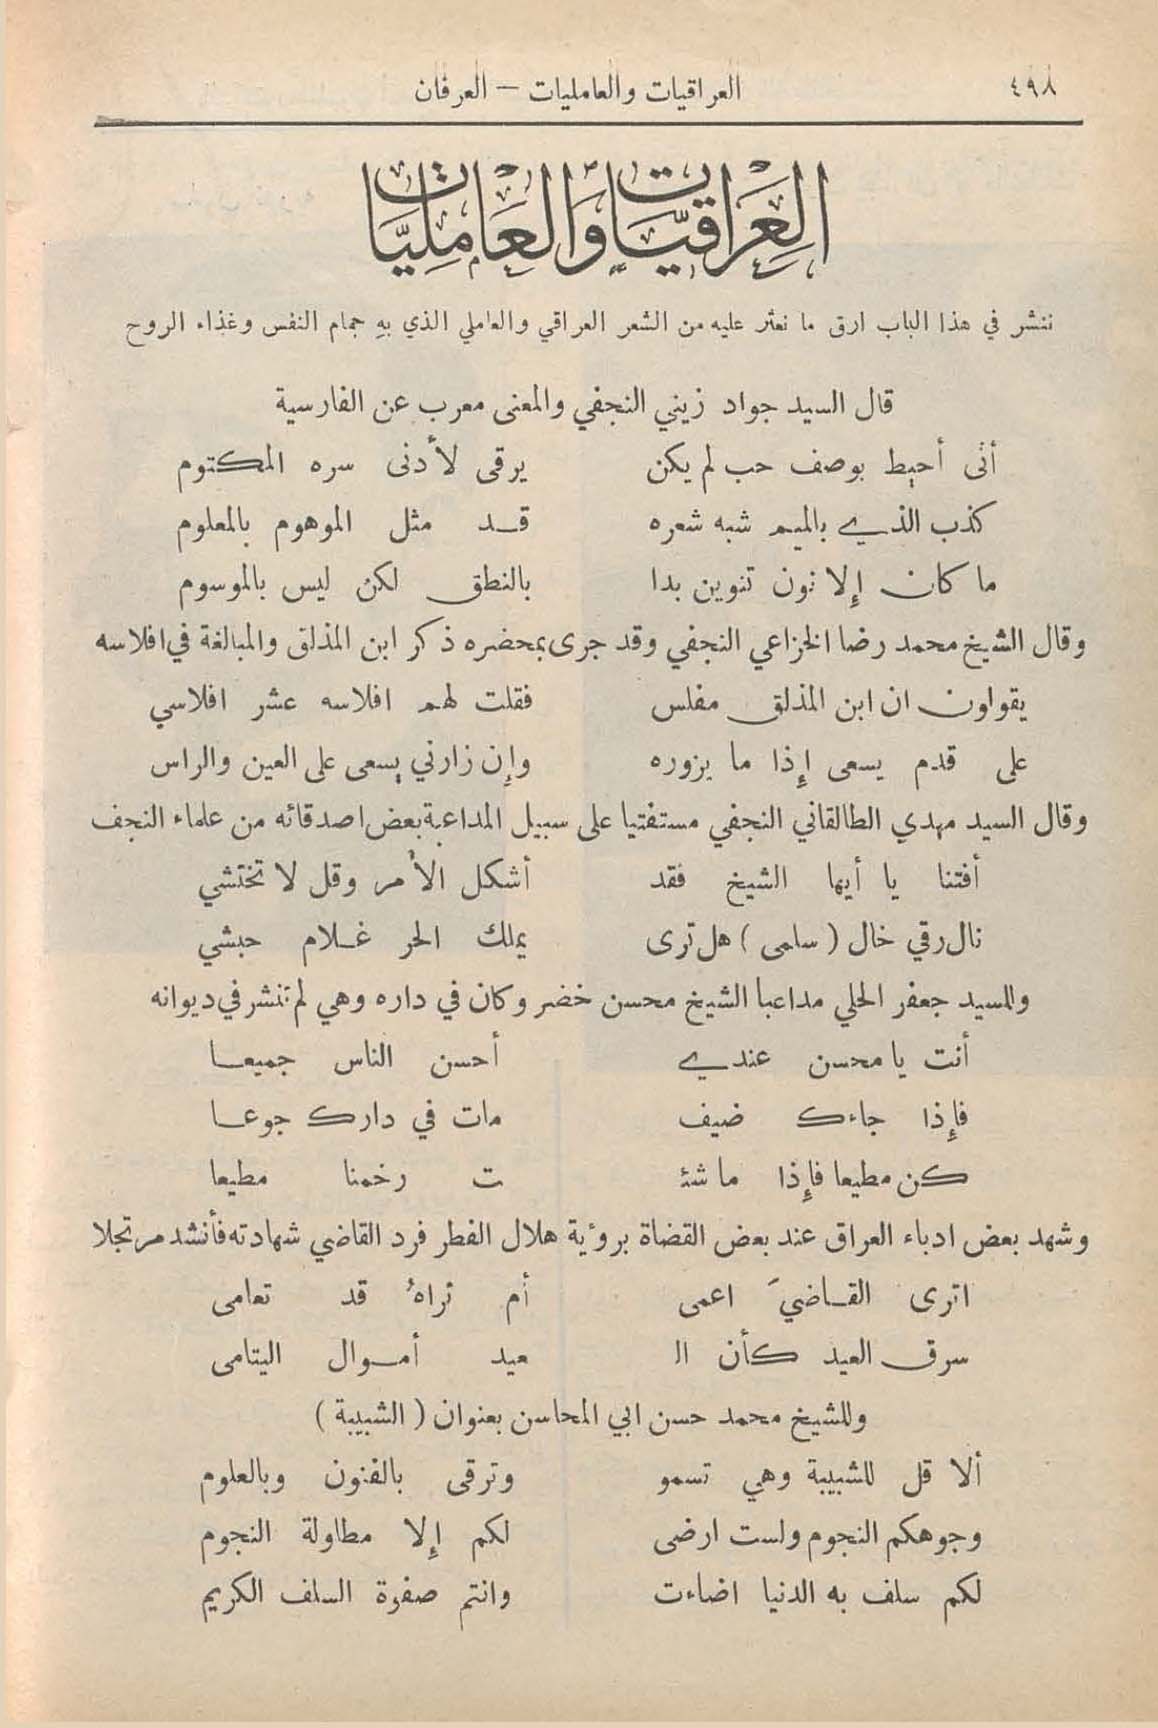 ٤٩٨ العراقيات والعامليات — العرفان
العِرَاقيَّات وَالعَامِليَّات
ننشر في هذا الباب ارق ما نعثر عليه من الشعر العراقي والعاملي الذي به جمام النفس وغذاء الروح
قال السيد جواد زيني النجفي والمعنى معرب عن الفارسية
أنى أحيط بوصف حب لم يكن يرقى لأدنى سره المكتوم
كذب الذي بالميم شبه شعره قد مثل الموهوم بالمعلوم
ما كان إلا نون تنوين بدا بالنطق لكن ليس بالموسوم
وقال الشيخ محمد رضا الخزاعي النجفي وقد جرى بمحضره ذكر ابن المذلق والمبالغة في افلاسه
يقولون ان ابن المذلق مفلس فقلت لهم افلاسه عشر افلاسي
على قدم يسعى إذا ما يزوره وإن زارني يسعى على العين والراس
وقال السيد مهدي الطالقاني النجفي مستفتيا على سبيل المداعبة بعض اصدقائه من علماء النجف
أفتنا يا أيها الشيخ فقد أشكل الأمر وقل لا تختشي
نال رقي خال ( سلمى ) هل ترى يملك الحر غلام حبشي
وللسيد جعفر الحلي مداعبا الشيخ محسن خضر وكان في داره وهي لم تنشر في ديوانه
أنت يا محسن عندي أحسن الناس جميعا
فإذا جاءك ضيف مات في دارك جوعا
كن مطيعا فإذا ما شئـ ـت رخمنا مطيعا
وشهد بعض ادباء العراق عند بعض القضاة برؤية هلال الفطر فرد القاضي شهادته فأنشد مرتجلا
اترى القاضيَ اعمى أم تراهُ قد تعامى
سرق العيد كأن الـ ـعيد أموال اليتامى
وللشيخ محمد حسن ابي المحاسن بعنوان ( الشبيبة )
ألا قل للشبيبة وهي تسمو وترقى بالفنون وبالعلوم
وجوهكم النجوم ولست ارضى لكم إلا مطاولة النجوم
لكم سلف به الدنيا اضاءت وانتم صفوة السلف الكريم